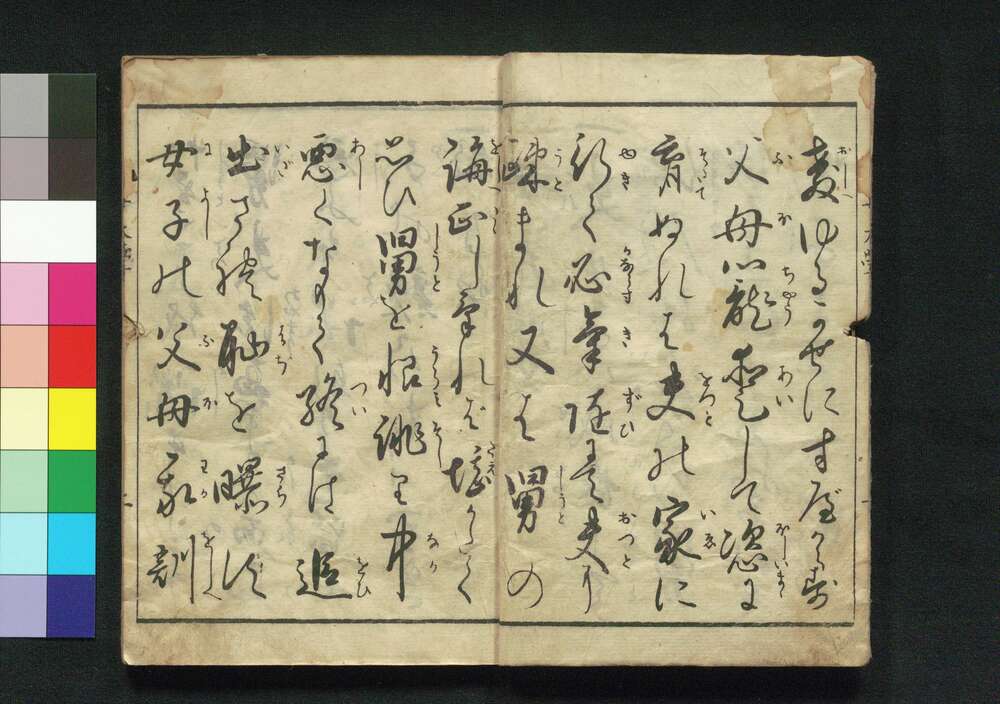 教ゆるかせにすべからず
父母寵愛して恣に
育ぬれば夫の家に
行て必氣随にて夫に
疎まれ又は舅の
誨正しければ堪がたく
思ひ舅を恨誹り中
悪くなりて終には追
出され恥を曝す
女子の父母我訓